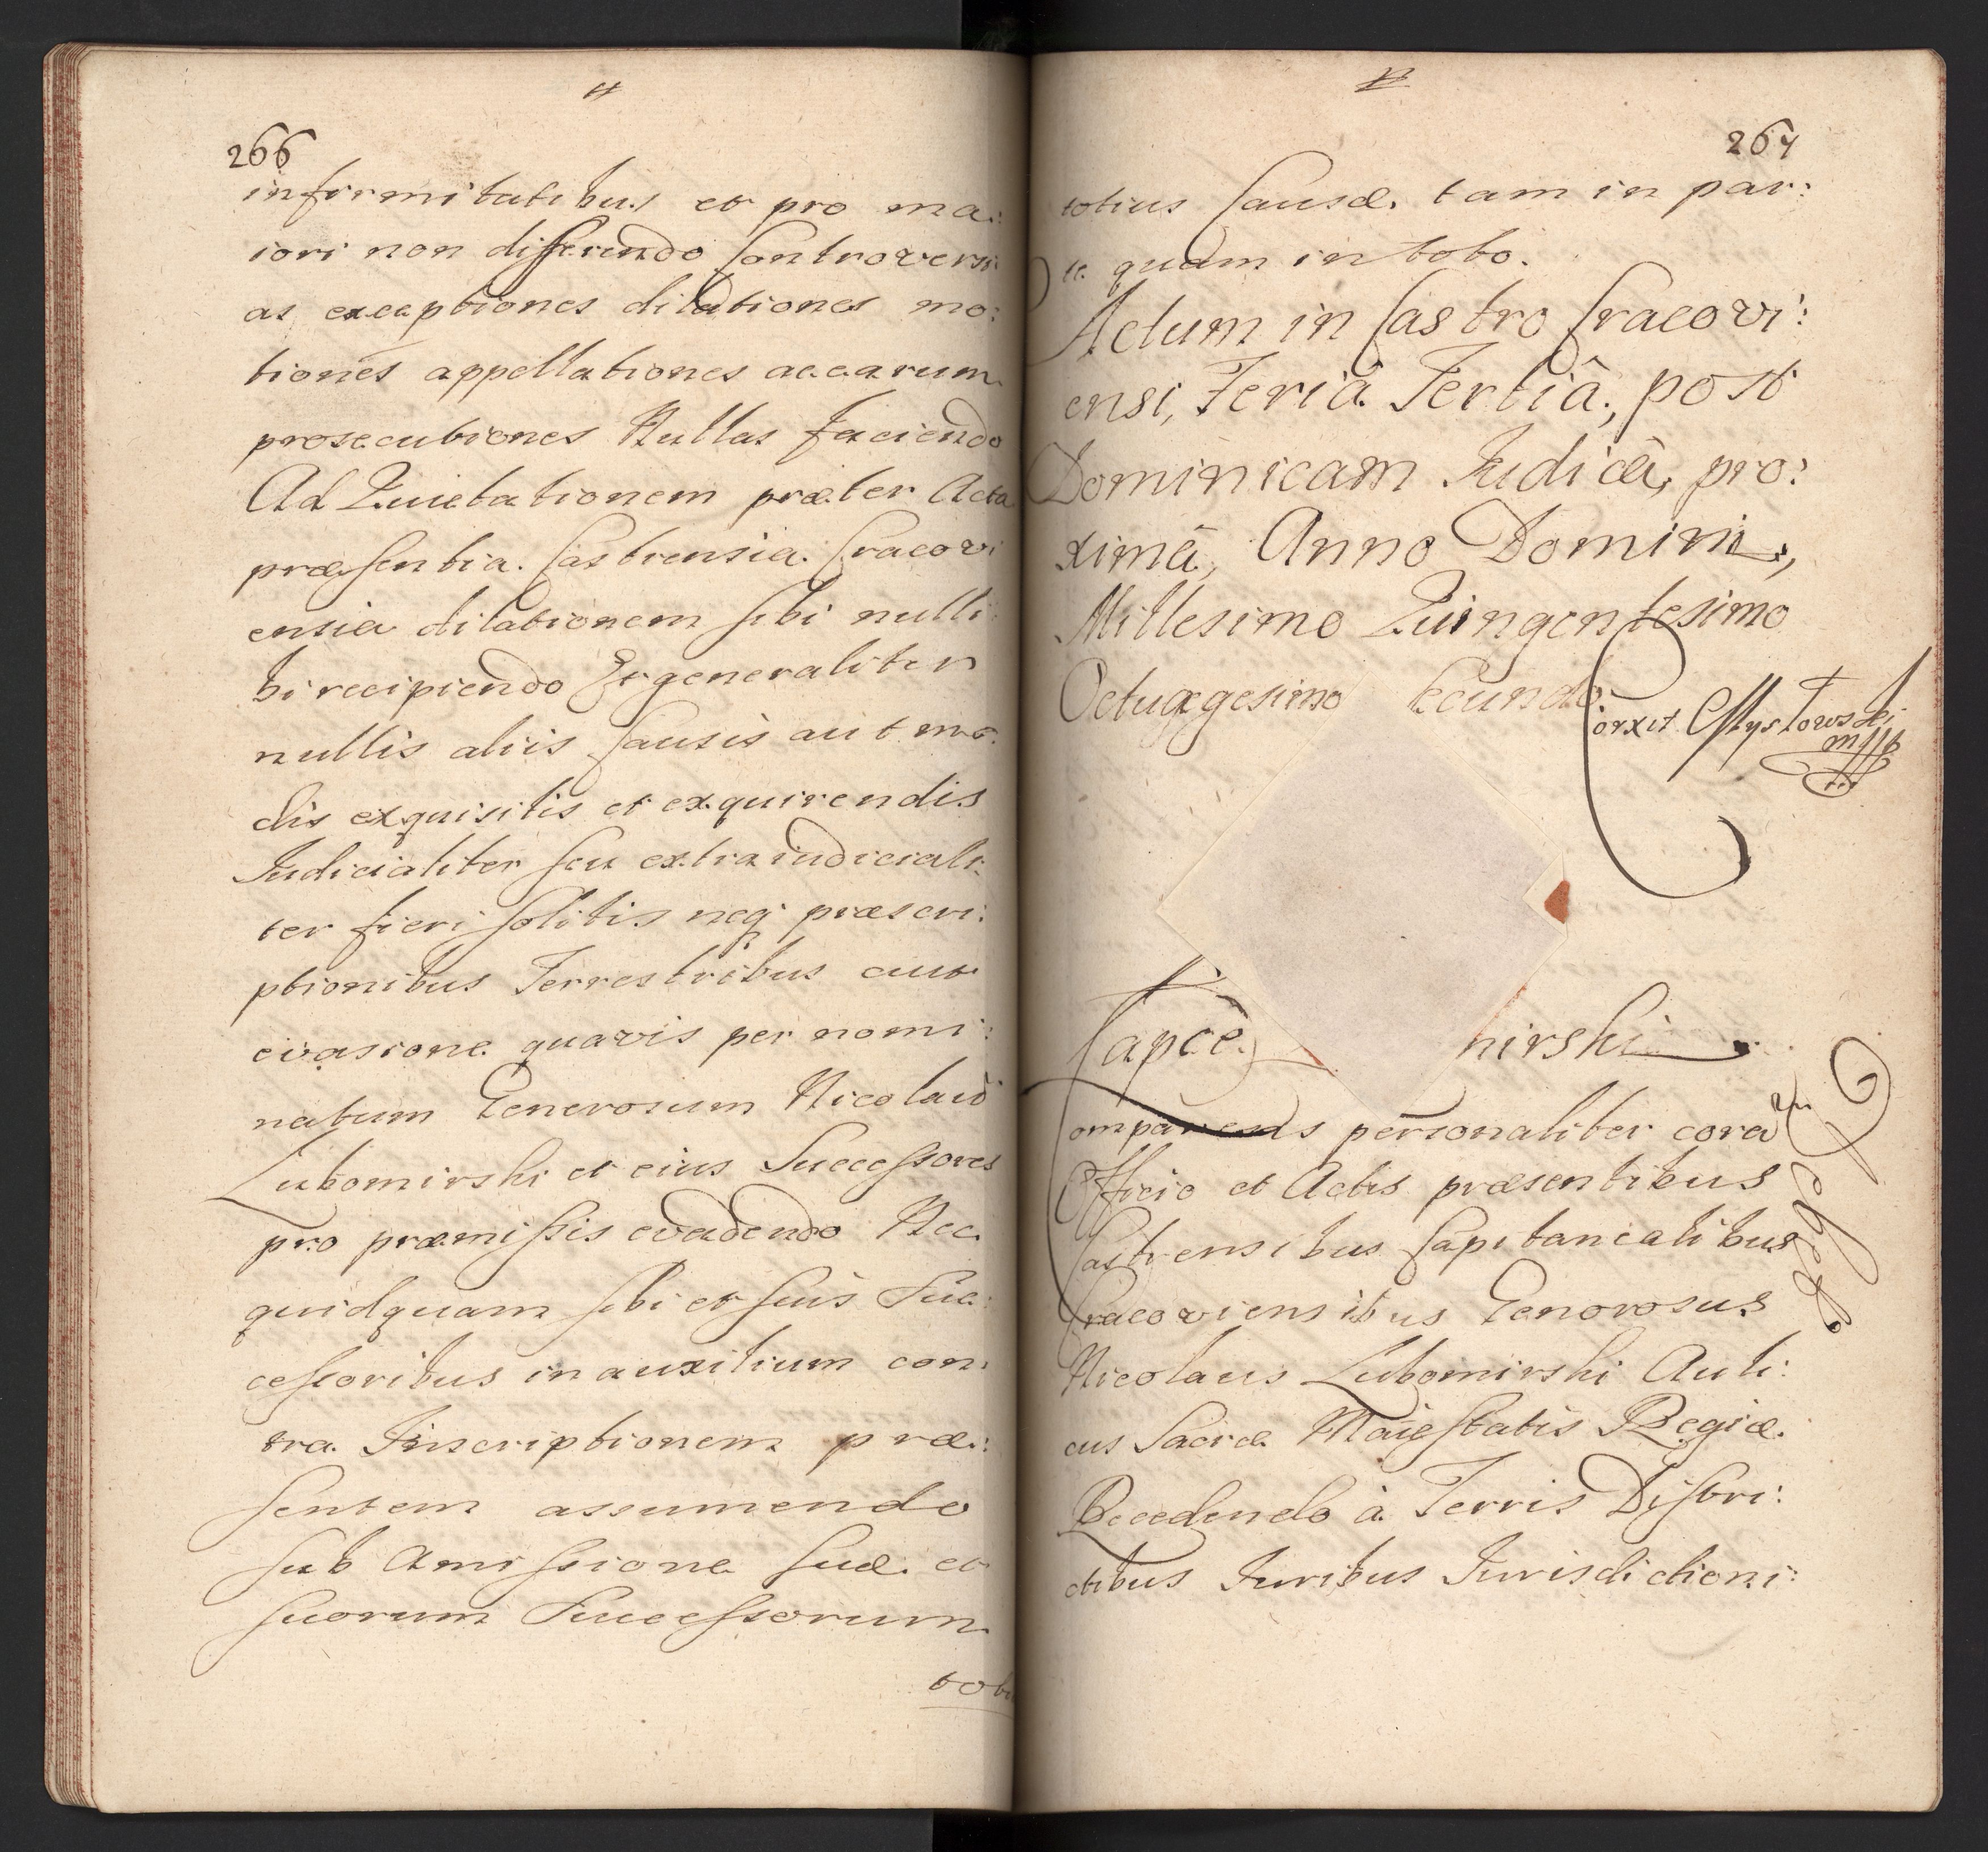 266
infirmitatibus et pro ma:
iori non differendo Controversi
as exceptiones dilationes mo:
tiones appellationes accarum
prosecutiones Nullas faciendo
Ad Quietationem præter Acta
præsentia Castrensia Cracovi
ensia dilationem sibi nulli
bi recipiendo Et generaliter
nullis aliis Causis aut mo:
dis exquisitis et exquirendis
Judicialiter seu extraiudiciali:
ter fieri solitis neq præscri:
ptionibus Terrestribus aut
evasione quavis per nomi:
natum Generosum Nicolaū
Lubomirski et eius Successores
pro præmissis evadendo Nec
quidquam sibi et suis Suc:
cessoribus in auxilium con:
tra Jnscriptionem præ:
sentem assumendo
sub Amissione suæ et
suorum Successorum
toti
267
totius Causæ tam in par:
te quam in toto.
Actum in Castro Cracovi:
ensi, Feriâ Tertiâ, post
Dominicam Judicâ, pro:
ximâ, Anno Domini,
Millesimo Quingentesimo
Octuagesimo Secundo
Corxit
mpp
Capce
mirski
Comparens personaliter corā
Officio et Actis præsentibus
Castrensibus Capitanealibus
Cracoviensibus Generosus
Nicolaus Lubomirski Auli:
cus Sacræ Maiestatis Regiæ
Recedendo à Terris Distri:
ctibus Juribus Jurisdictioni: